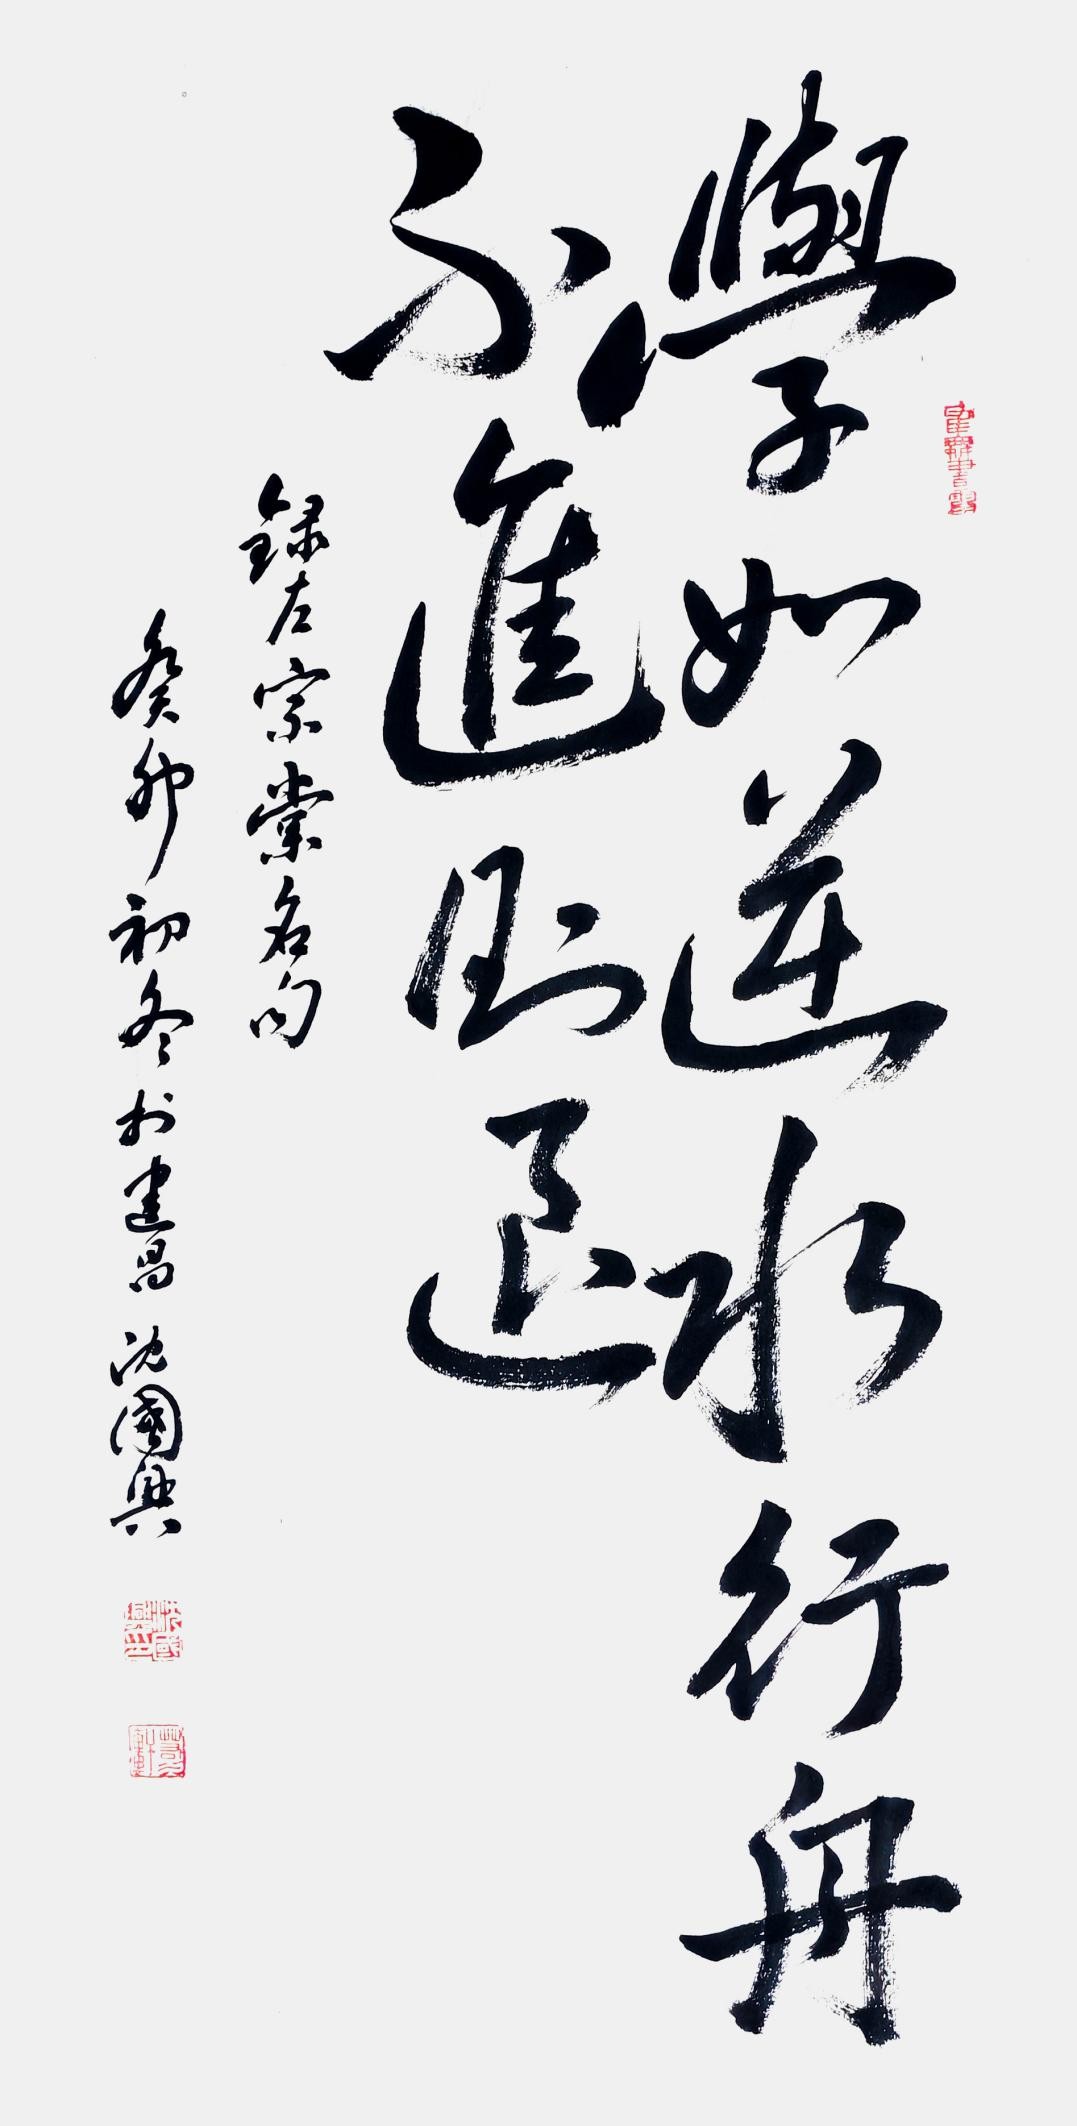 學如逆水行舟
不進則退
録左宗棠名句
癸卯初冬於建昌沈國興